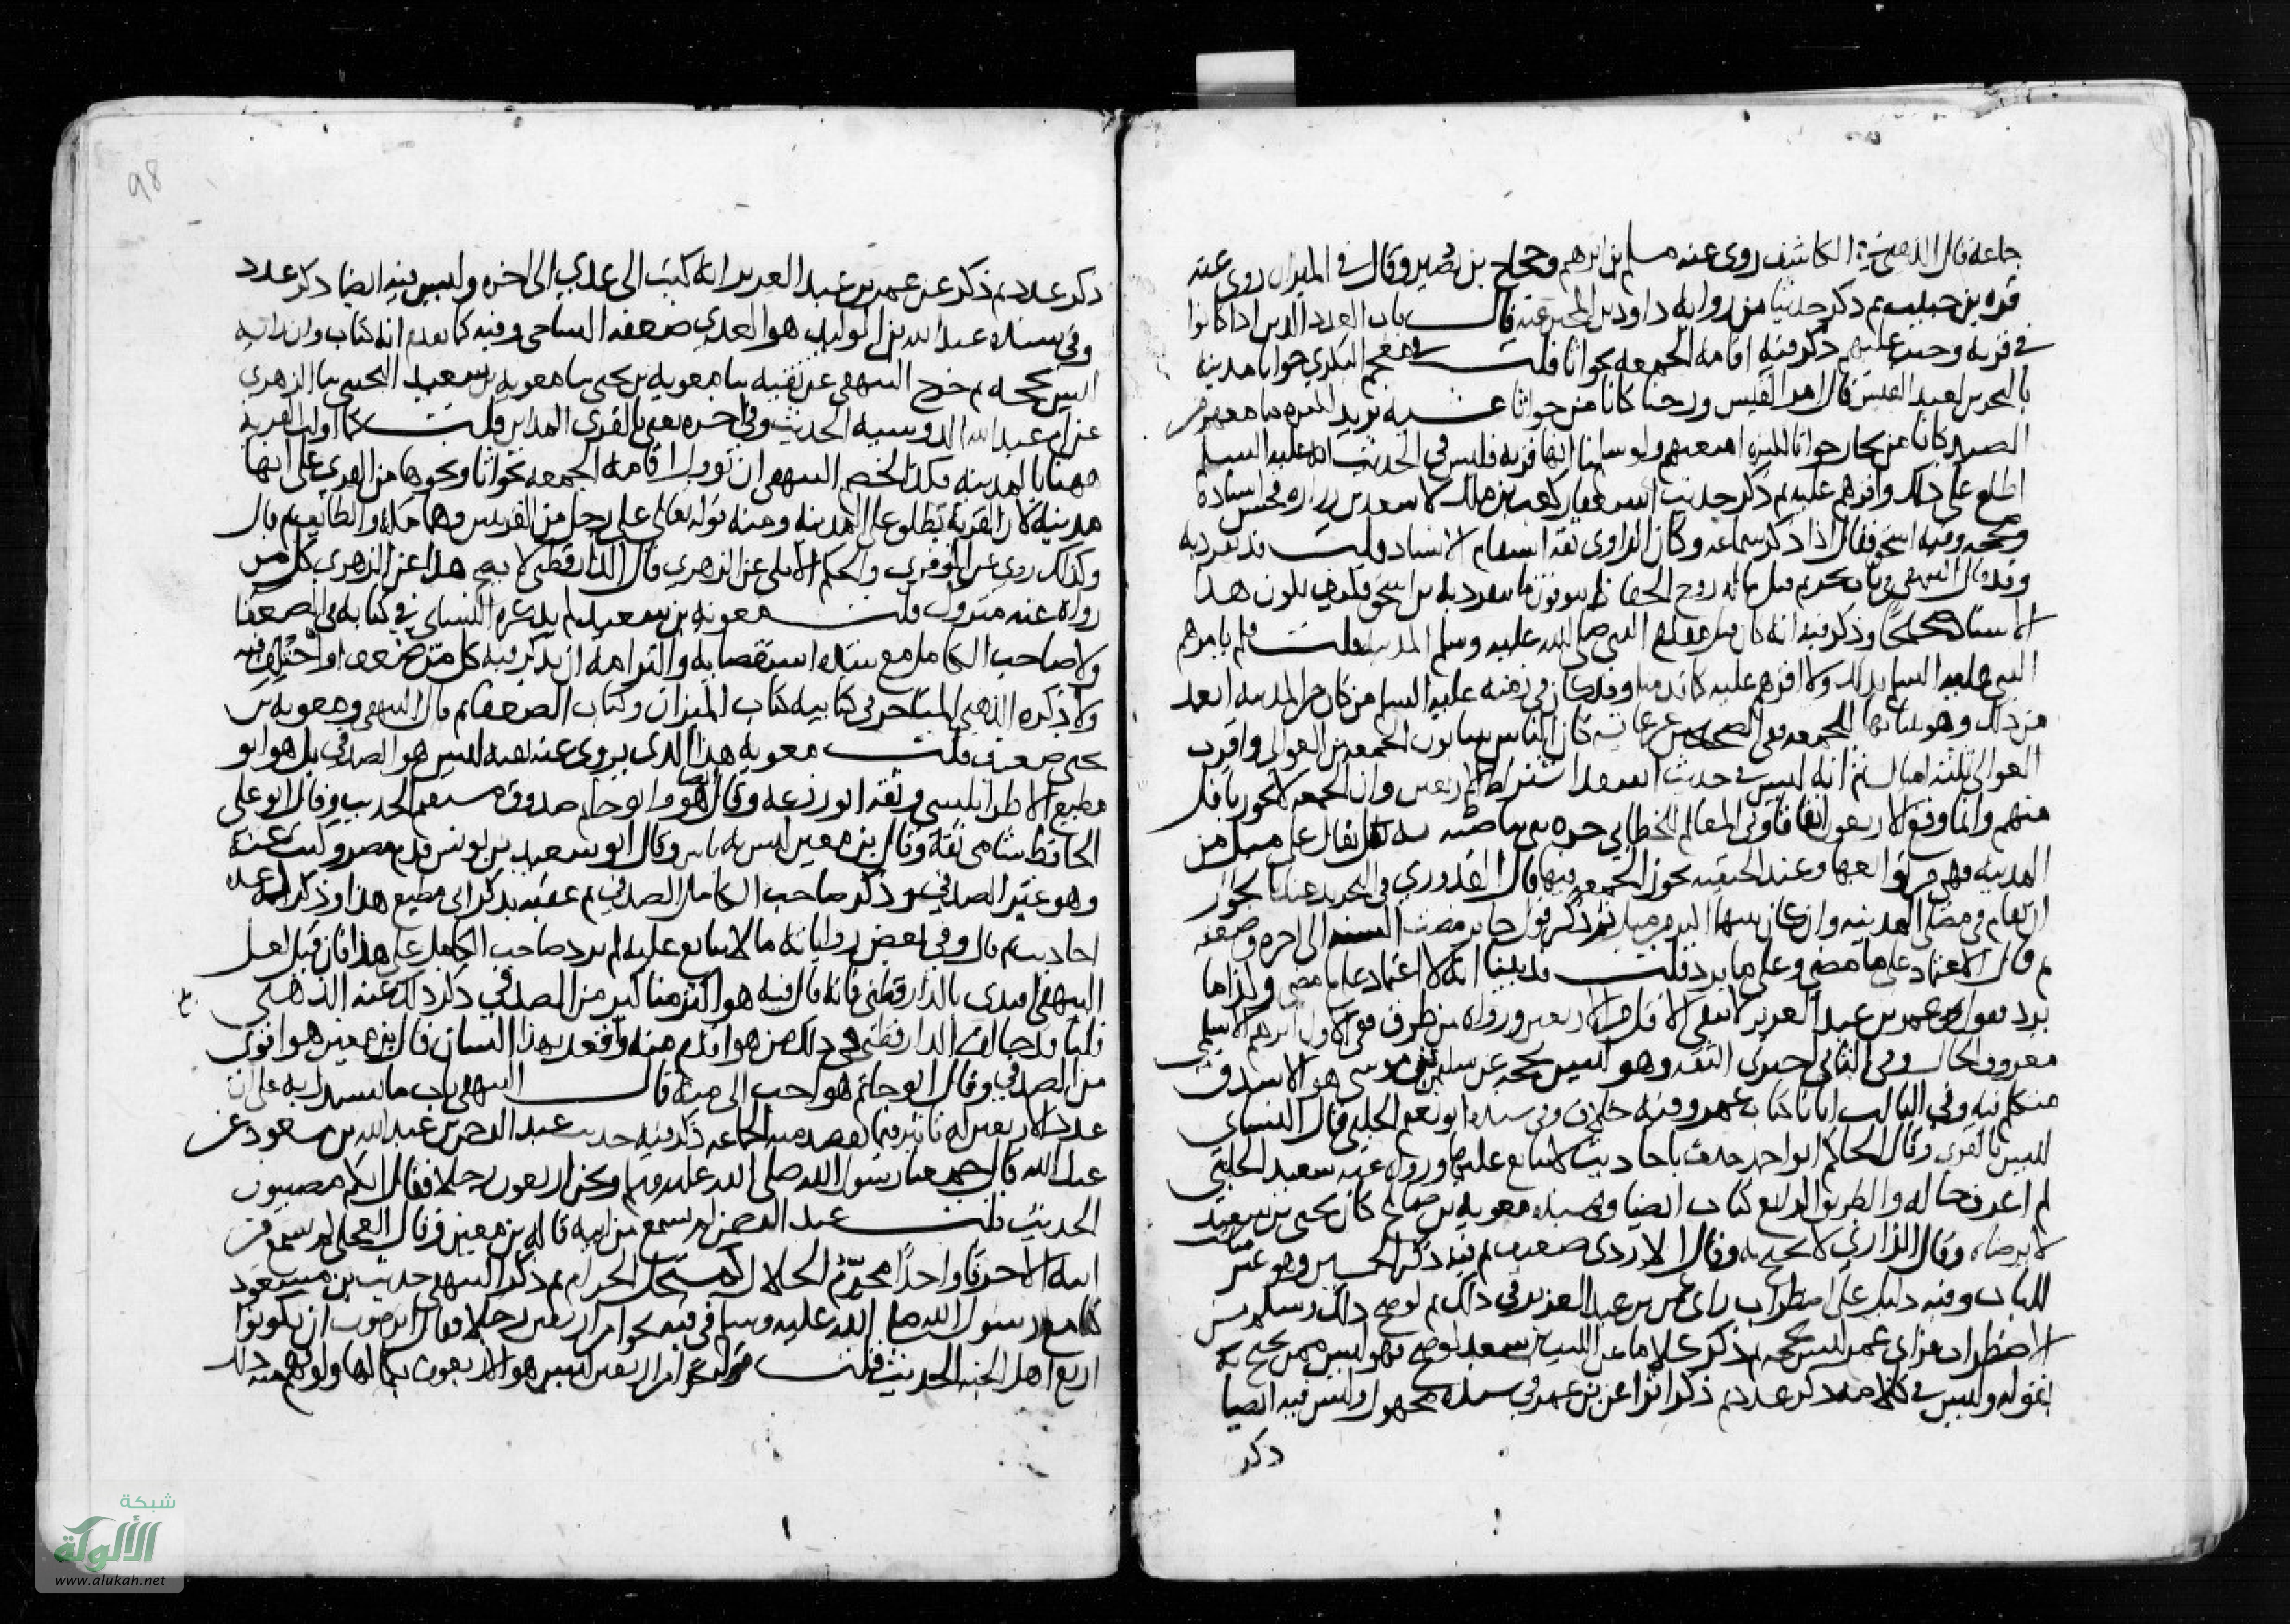 جماعة قال الذهبي في الكاشف روى عنه مسلم بن ابرهيم وحجاج بن نصير وقال في الميزان روى عنه
قرة بن حبيب ثم ذكر حديثا من رواية داود بن المحبر عنه قال باب العدد الذين اذا كانوا
في قرية وجبت عليهم ذكر فيه اقامة الجمعة بجواثا قلت في معجم البكري جواثا مدينة
بالبحرين لعبد القيس قال امرؤ القيس ورحنا كانا من جواثا عشية
اطلع على ذلك واقرهم عليه ثم ذكر حديث استغفار كعب بن ملك لاسعد بن زرارة في اسناده
محمد بن اسحق فقال اذا ذكر سماعه وكان الراوي ثقة استقام الاسناد قلت
وقد قال البيهقي في باب تحريم قتل ماله روح الحفاظ يتوقون ما ينفرد به بن اسحق فكيف يكون هذا
الاسناد صحيحا وذكر فيه انه كان قبل مقدم النبي صلى الله عليه وسلم المدينة قلت فلم يامرهم
النبي عليه السلم بذلك ولا اقرهم عليه
العوالي ثلثة اميال ثم انه ليس في حديث اسعد اشتراط الاربعين وان الجمعة لا تجوز باقل
منهم وانما وقع الاربعون اتفاقا وفي المعالم للخطابي حرة بني بياضة يقال على ميل من
المدينة فهي من توابعها وعند الحنفية تجوز الجمعة فيها قال القدوري في التجريد عندنا يجوز
ان تقام في مصلى المدينة وان كان بينهما اكثر من ميل ثم ذكر قول جابر مضت السنة الى اخره وضعفه
ثم قال الاعتماد على ما مضى وعلى ما يرد قلت قد بينا انه لا اعتماد على ما مضى ولذا ما
يرد فهو راي عمر بن عبد العزيز لا ينفي الاقل من الاربعين ورواه من طرق ففي الاول ابرهيم الاسلمي
معروف الحال وفي الثاني اخبرني الثقة وهو ليس بحجة عن سليمن بن موسى هو الاشدق
متكلم فيه وفي الثالث اتانا كتاب عمر وفيه خلاف وفي سنده ابو نعيم الحلبي قال النسائي
ليس بالقوي وقال الحاكم ابو احمد حدث باحاديث لا يتابع عليها
لم اعرف حاله والطريق الرابع كتاب ايضا وفي سنده معوية بن صالح كان يحيى بن سعيد
لا يرضاه وقال الرازي لا يحتج به وقال الازدي ضعيف ثم فيه ذكر الخمسين وهو غير مناسب
للباب وفيه دليل على اضطراب راي عمر بن عبد العزيز في ذلك
الاضطراب فراي عمر ليس بحجة ثم ذكر كلاما عن الليث بن سعد لو صح فهو ليس ممن يحتج به
بقوله وليس في كلامه ذكر عدد ثم ذكر اثرا عن بن عمر في سنده مجهول وليس فيه ايضا
ذكر
98
ذكر عدد ثم ذكر عن عمر بن عبد العزيز انه كتب الى عدي الى اخره وليس فيه ايضا ذكر عدد
وفي سنده عبد الله بن الوليد هو العدني ضعفه الساجي وفيه كما تقدم انه كتاب وان رايه
ليس بحجة ثم خرج البيهقي عن بقية ثنا معوية بن يحيى ثنا معوية بن سعيد التجيبي ثنا الزهري
عن ام عبد الله الدوسية الحديث وفي اخره يعني بالقرى المداين قلت كما اولت القرية
ههنا بالمدينة فكذا لخصم البيهقي ان تؤول اقامة الجمعة بجواثا ونحوها من القرى على انها
مدينة لان القرية تطلق على المدينة ومنه قوله تعالى على رجل من القريتين وهما مكة والطايف ثم قال
وكذلك روي عن الموقري والحكم الايلي عن الزهري قال الدارقطني لا يصح هذا عن الزهري كل من
رواه عنه متروك قلت معوية بن سعيد لم يذكره النسائي في كتابه في الضعفا
ولا صاحب الكامل مع شدة استقصايه والتزامه ان يذكر فيه كل من ضعف او اختلف فيه
ولا ذكره الذهبي المتاخر في كتابيه كتاب الميزان وكتاب الضعفا ثم قال البيهقي ومعوية بن
يحيى ضعيف قلت معوية هذا الذي يروي عنه بقية ليس هو الصدفي بل هو ابو
مطيع الاطرابلسي وثقه ابو زرعة وقال هو وابو حاتم ايضا صدوق مستقيم الحديث وقال ابو علي
الحافظ شامي ثقة وقال بن معين ليس به باس وقال ابو سعيد بن يونس قدم مصر وكتب عنه
وهو غير الصدفي وذكر صاحب الكامل الصدفي ثم عقبه بذكر ابي مطيع هذا وذكر له عدة
احاديث ثم قال وفي بعض رواياته ما لا يتابع عليه لم يزد صاحب الكامل على هذا فان قيل لعل
البيهقي اقتدى بالدارقطني فانه قال فيه هو اكثر مناكير من الصدفي ذكر ذلك عنه الذهبي
قلنا قد خالف الدارقطني في ذلك من هو اقدم منه واقعد بهذا الشان قال بن معين هو اقوى
من الصدفي وقال ابو حاتم هو احب الي منه قال البيهقي باب ما يستدل به على ان
عدد الاربعين له تاثير فيما يقصد منه الجماعة ذكر فيه حديث عبد الرحمن بن عبد الله بن مسعود عن
عبد الله قال جمعنا رسول الله صلى الله عليه وسلم ونحن اربعون رجلا فقال انكم مصيبون
الحديث قلت عبد الرحمن لم يسمع من ابيه قاله بن معين وقال العجلي لم يسمع من
ابيه الا حرفا واحدا محرم الحلال كمستحل الحرام ثم ذكر البيهقي حديث بن مسعود
كنا مع رسول الله صلى الله عليه وسلم في قبة نحوا من اربعين رجلا فقال اترضون ان تكونوا
ربع اهل الجنة الحديث قلت نحوا من اربعين ليس هو الاربعون بكمالها ولو فهم منه ذلك
شبكة
الألوكة
www.alukah.net